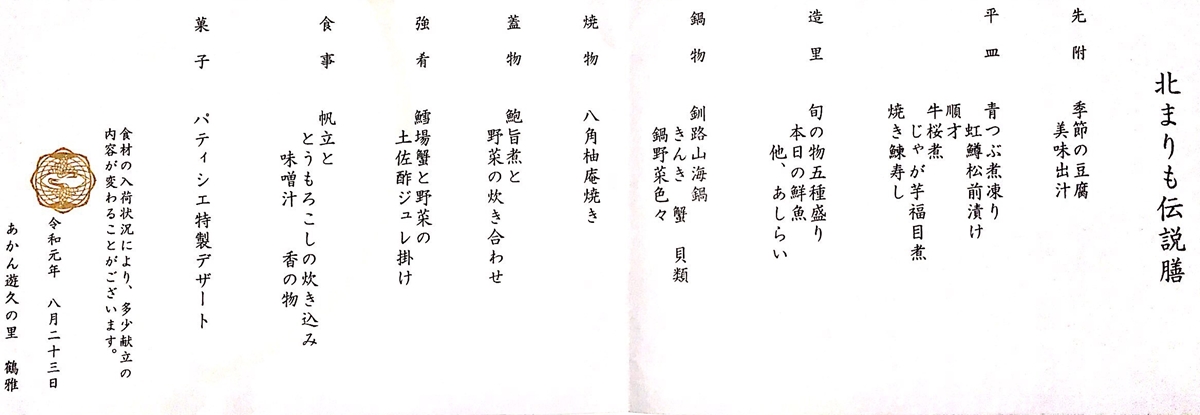 北まりも伝説膳
先附　季節の豆腐
美味出汁
平皿　青つぶ煮凍り
虹鱒松前漬け
順才
牛桜煮
じゃが芋福目煮
焼き鰊寿し
造里　旬の物五種盛り
本日の鮮魚
他、あしらい
鍋物　釧路山海鍋
きんき　蟹　貝類
鍋野菜色々
焼物　八角柚庵焼き
蓋物　鮑旨煮と
野菜の炊き合わせ
強肴　鱈場蟹と野菜の
土佐酢ジュレ掛け
食事　帆立と
とうもろこしの炊き込み
味噌汁　香の物
菓子　パティシエ特製デザート
食材の入荷状況により、多少献立の
内容が変わることがございます。
令和元年　八月二十三日
あかん遊久の里　鶴雅